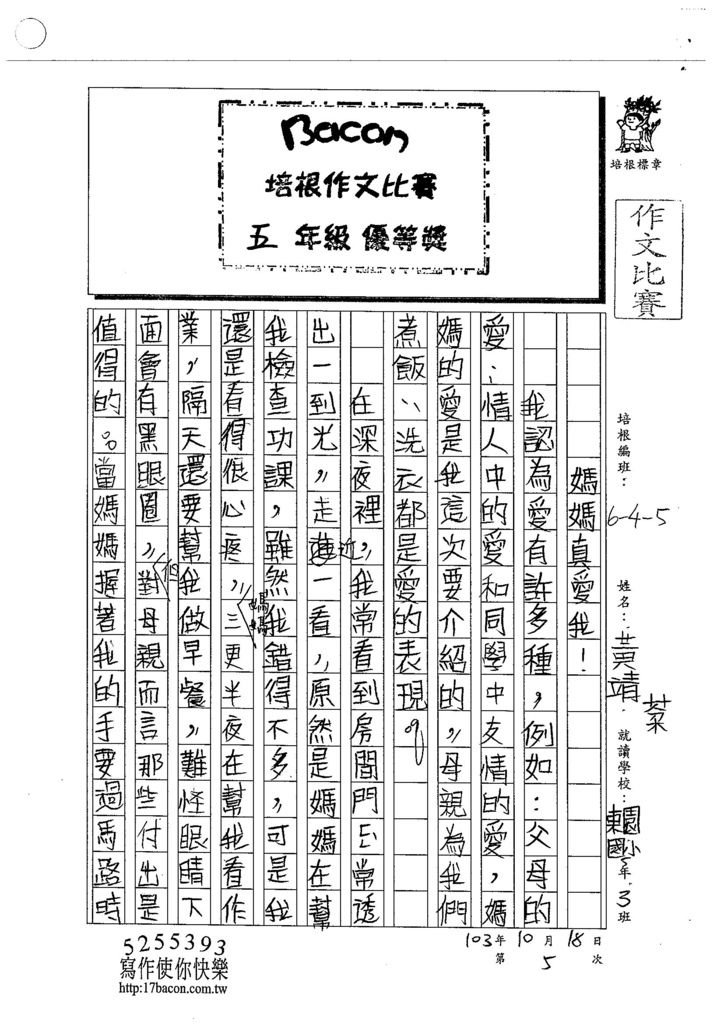 Bacon
培根作文比賽
五 年級 優等獎
培根標章
作文比賽
培根編班：6-4-5
姓名：黃靖棻
就讀學校：東園國小 5年 3班
媽媽真愛我！
我認為愛有許多種，例如：父母的
愛；情人中的愛和同學中友情的愛，媽
媽的愛是我這次要介紹的，母親為我們
煮飯、洗衣都是愛的表現。
在深夜裡，我常看到房間門口常透
出一到光，走近一看，原然是媽媽在幫
我檢查功課，雖然我錯得不多，可是我
還是看得很心疼，媽媽三更半夜在幫我看作
業，隔天還要幫我做早餐，難怪眼睛下
面會有黑眼圈，但對母親而言那些付出是
值得的。當媽媽握著我的手要過馬路時
103年 10月 18日
第 5 次
5255393
寫作使你快樂
http:17bacon.com.tw